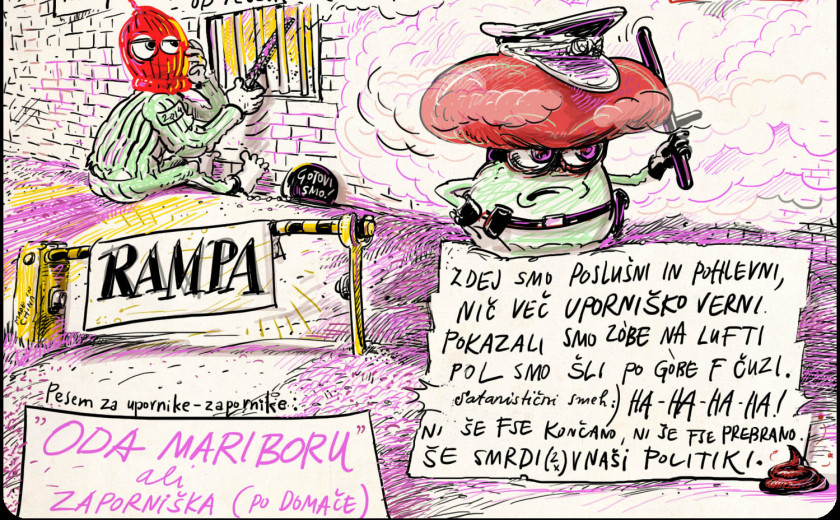 2019
GOTOVI
SMO!
RAMPA
Pesem za upornike-zapornike:
"ODA MARIBORU"
ali
ZAPORNIŠKA (PO DOMAČE)
ZDEJ SMO POSLUŠNI IN POHLEVNI,
NIČ VEČ UPORNIŠKO VERNI.
POKAZALI SMO ZOBE NA LUFTI
POL SMO ŠLI PO GOBE F ČUZI.
(satanistični smeh:) HA-HA-HA-HA!
NI ŠE FSE KONČANO, NI ŠE FSE PREBRANO.
ŠE SMRDI(2x)V NAŠI POLITIKI.